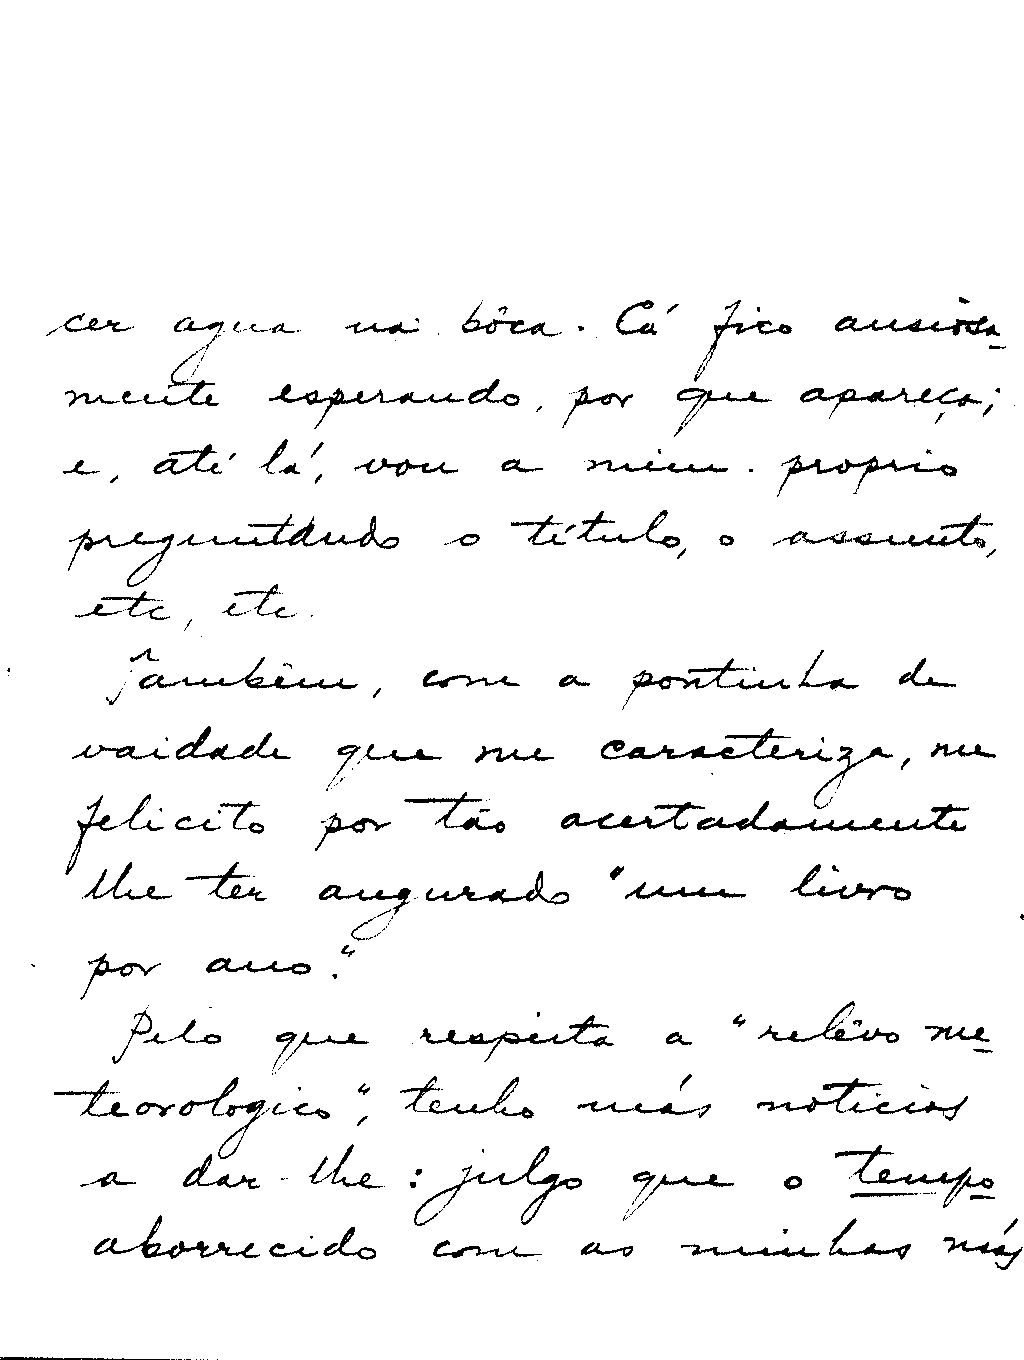 cer agua na bôca. Cá fico ansiosa-
mente esperando, por que apareça;
e, até lá, vou a mim proprio
preguntando o título, o assunto,
etc, etc.
Também, com a pontinha de
vaidade que me caracteriza, me
felicito por tão acertadamente
lhe ter augurado "um livro
por ano."
Pelo que respeita a "relêvo me-
teorologico", tenho más noticias
a dar-lhe: julgo que o tempo
aborrecido com as minhas más